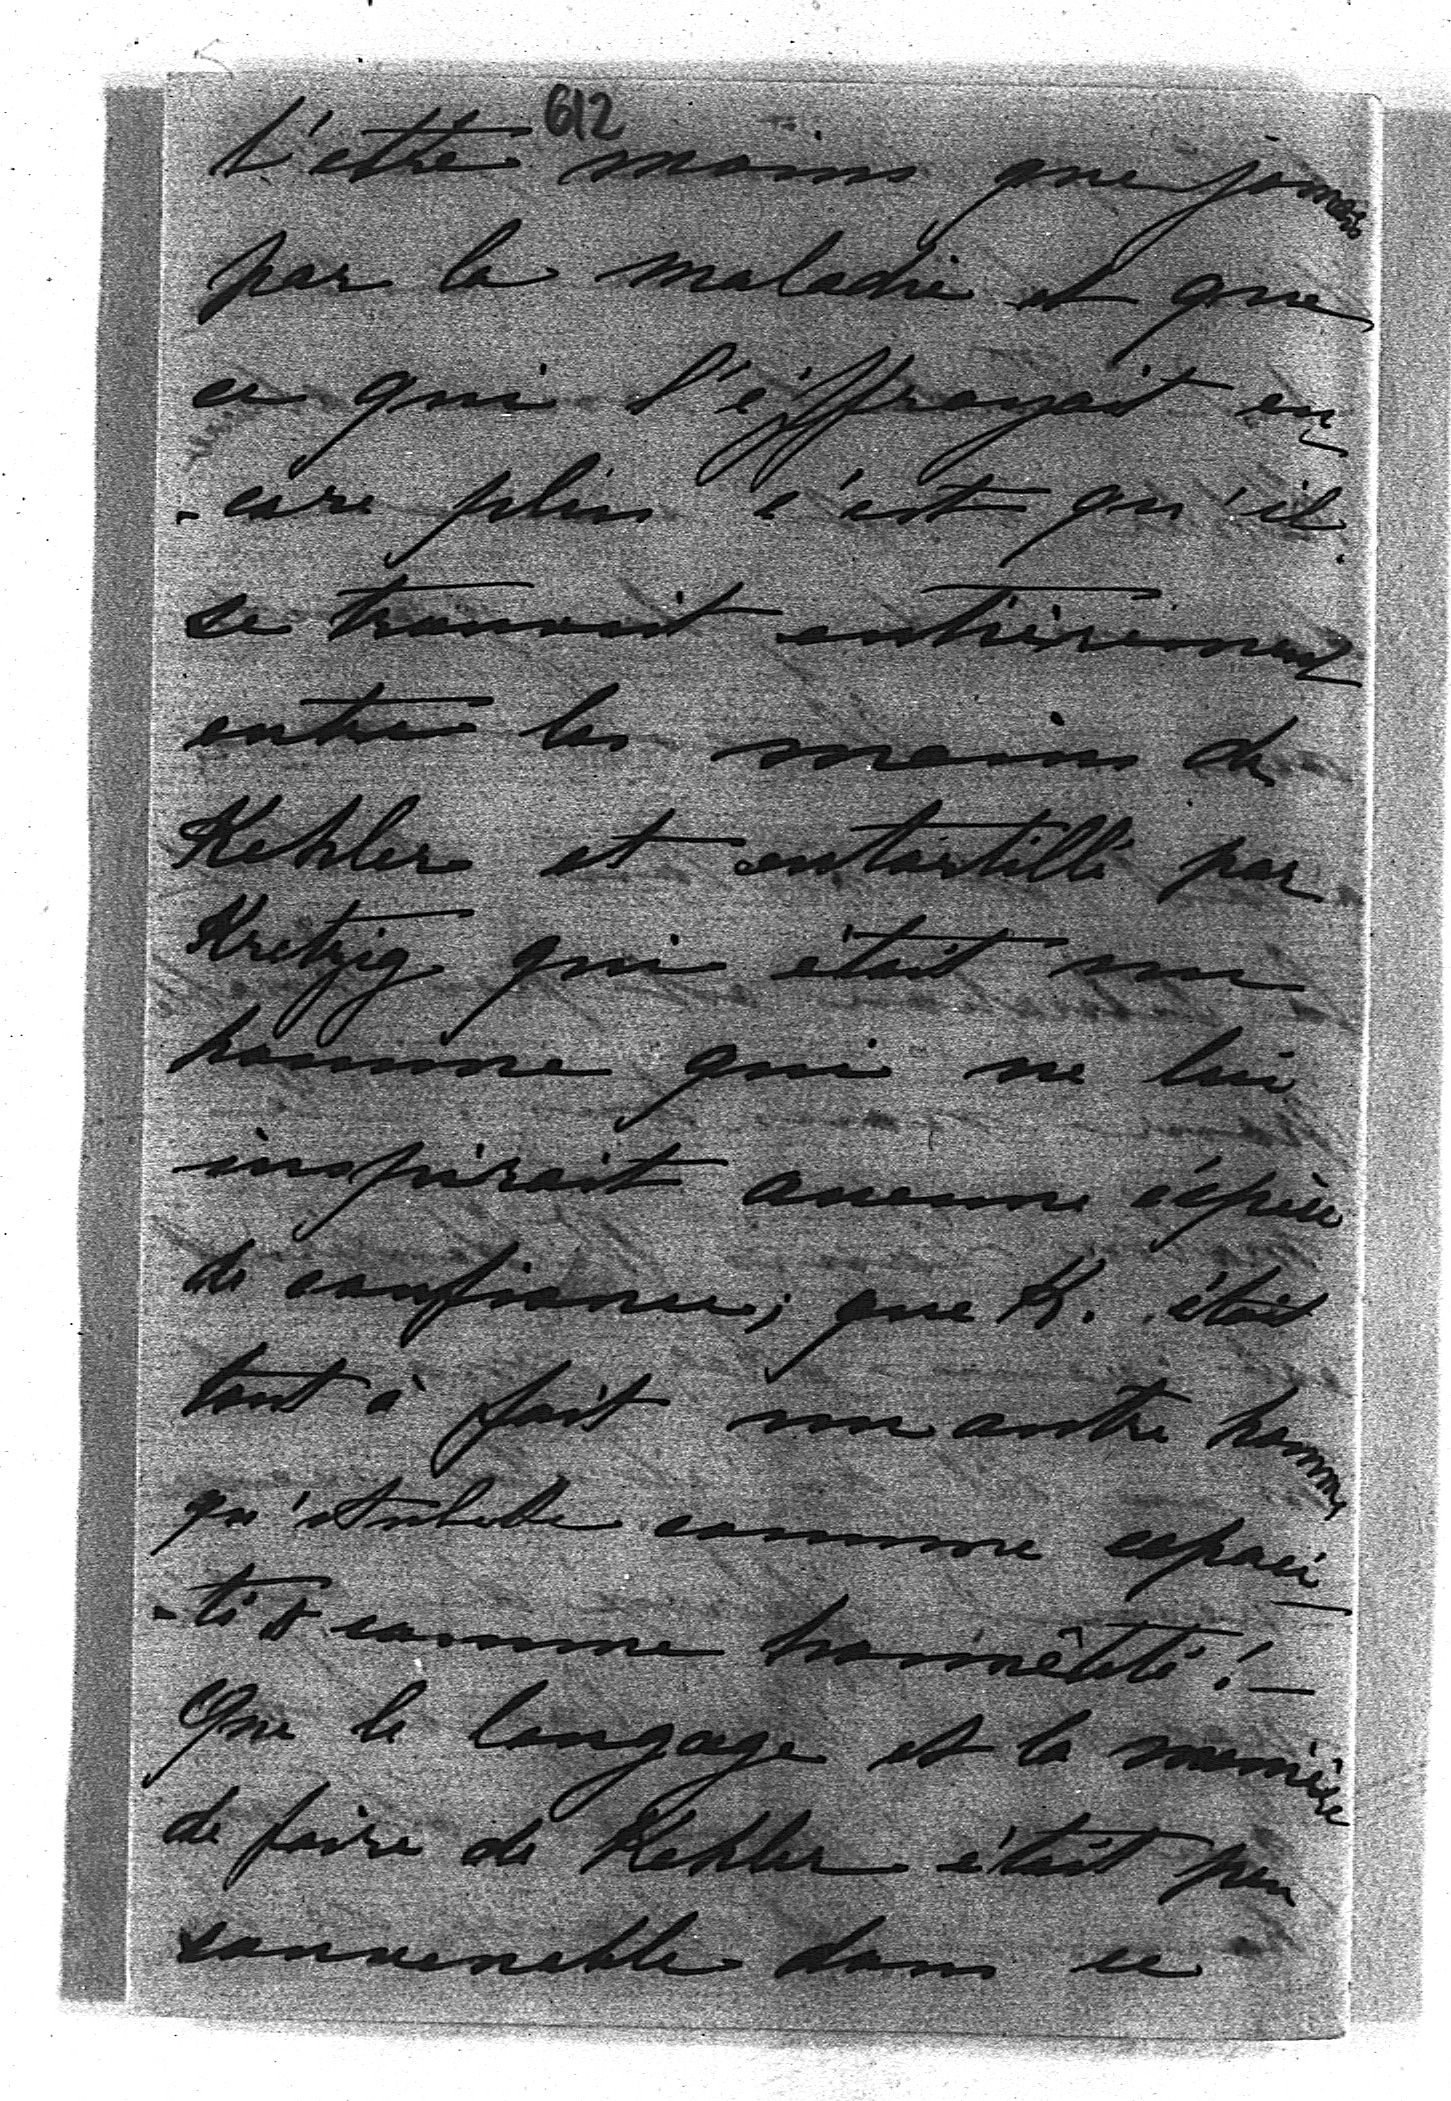 612
l'être moins que jamais
par la maladie et que
ce qui l'éffrayait en
-core plus c'est qu'il
se trouvait entièrement
entre les mains de
Kehler et entortillé par
Kretzig qui était un
homme qui ne lui
inspirait aucune éspèce
de confiance; que K. était
tout à fait un autre homme
qu' comme capaci
-té & comme honnêteté! –
Que le langage et la manière
de faire de Kehler était peu
convenable dans ce